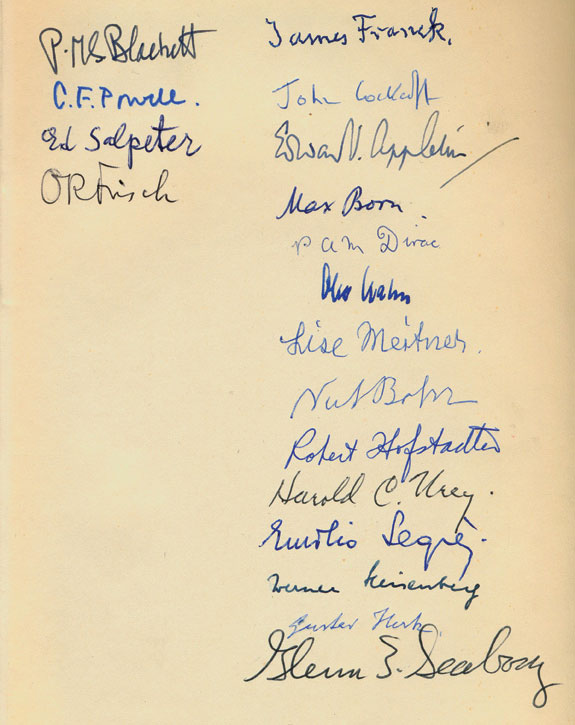 P.M.S Blackett
C.F. Powell.
Ed Salpeter
OR Frisch
James Franck.
John Cockcroft
Edward V. Appleton
Max Born.
P A M Dirac
Otto Hahn
Lise Meitner.
Niels Bohr
Robert Hofstadter
Harold C. Urey.
Emilio Segrè.
Werner Heisenberg
Gustav Hertz
Glenn T. Seaborg